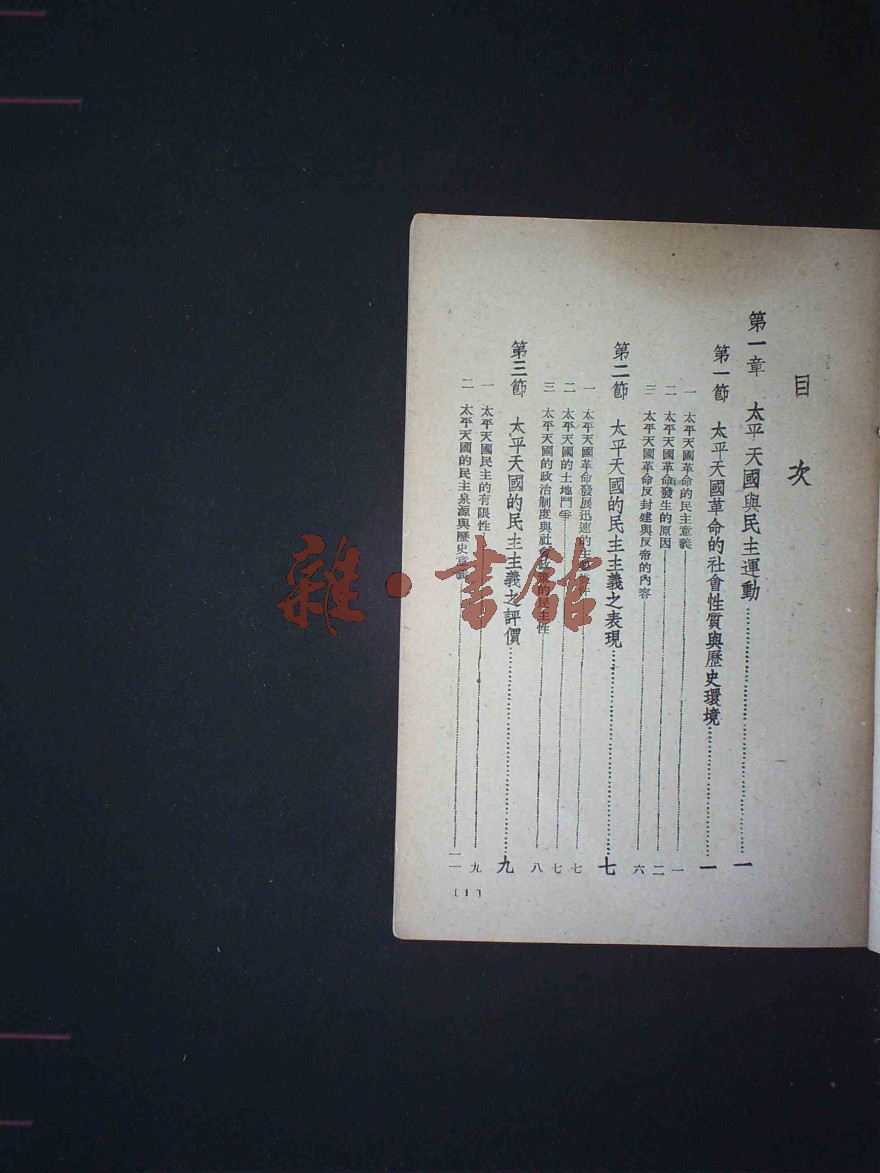 目次
第一章 太平天國與民主運動……一
第一節 太平天國革命的社會性質與歷史環境……一
一 太平天國革命的民主意義……一
二 太平天國革命發生的原因……二
三 太平天國革命反封建與反帝的內容……六
第二節 太平天國的民主主義之表現……七
一 太平天國革命發展迅速的主……七
二 太平天國的土地鬥爭……七
三 太平天國的政治制度與社會政策的民主性……八
第三節 太平天國的民主主義之評價……九
一 太平天國民主的有限性……九
二 太平天國的民主泉源與歷史意義……一一
[1]
雜·書館